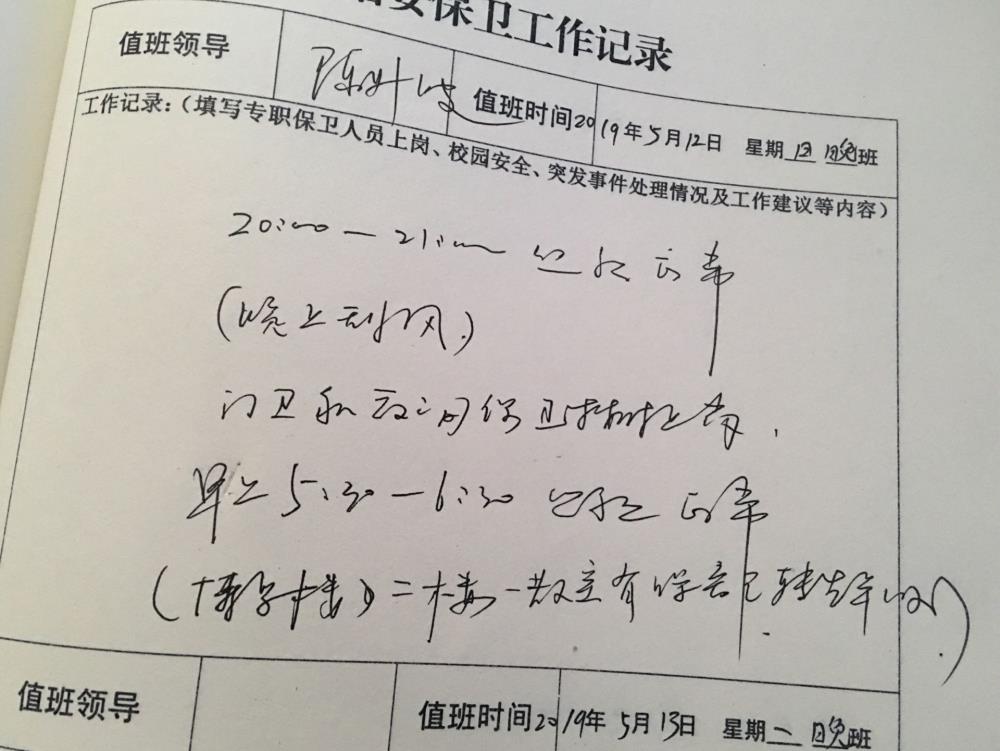 安保卫工作记录
值班领导 陈叶波 值班时间2019年5月12日 星期日晚班
工作记录:(填写专职保卫人员上岗、校园安全、突发事件处理情况及工作建议等内容)
20:00—21:00 巡视正常
(晚上刮风)
门卫和夜间保卫
早上5:30—6:30 巡视正常
(博学楼)二楼一教室有噪音已转
值班领导 值班时间2019年5月13日 星期一晚班